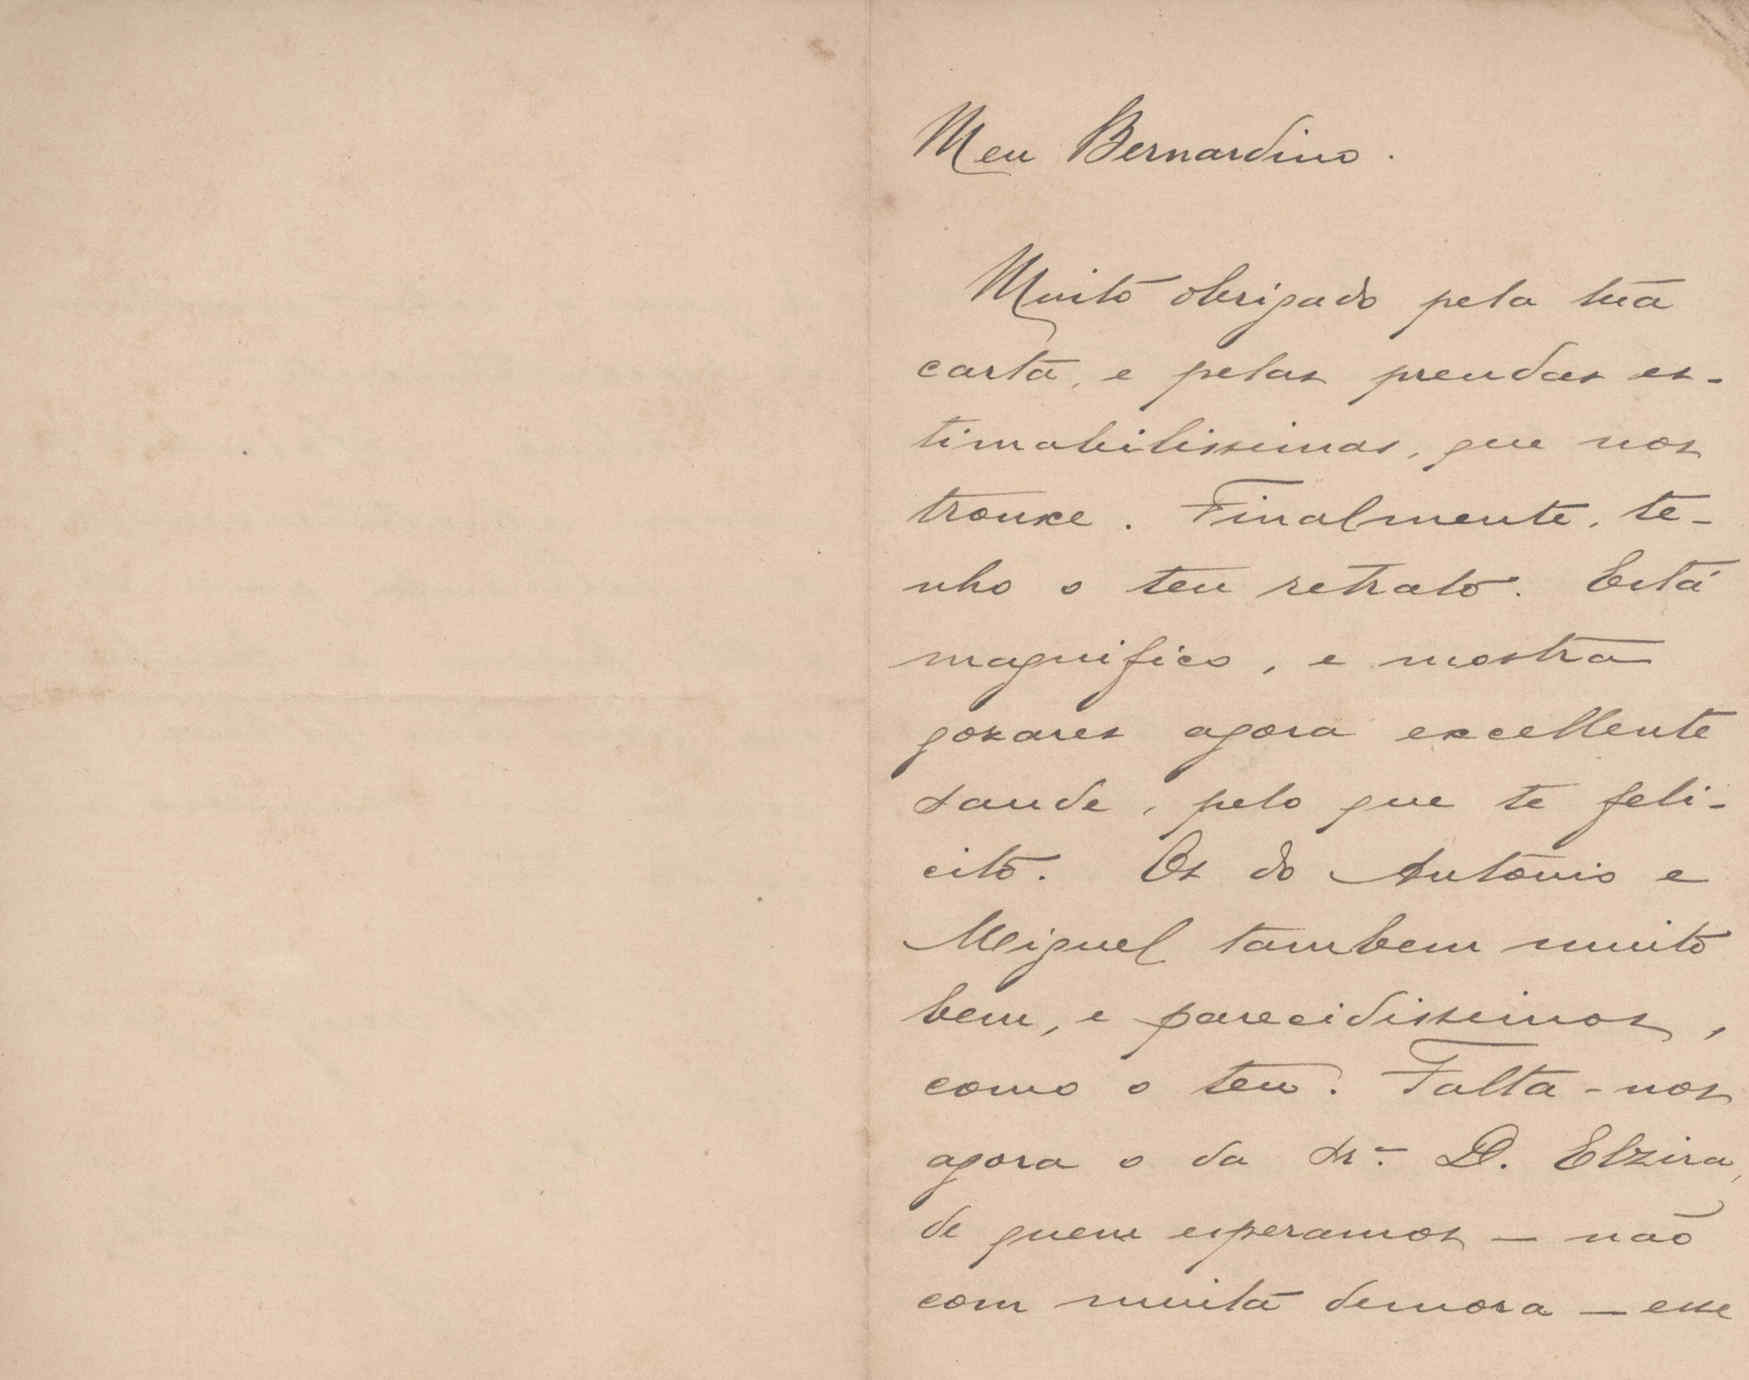 Meu Bernardino.
Muito obrigado pela tua
carta, e pelas prendas es-
timabilissimas, que nos
trouxe. Finalmente, te-
nho o teu retrato. Está
magnifico, e mostra
gozares agora excellente
saude, pelo que te feli-
cito. Os do Antonio e
Miguel tambem muito
bem, e parecidissimos,
como o teu. Falta-nos
agora o da Sr.ª D. Elzira,
de quem esperamos — não
com muita demora — esse